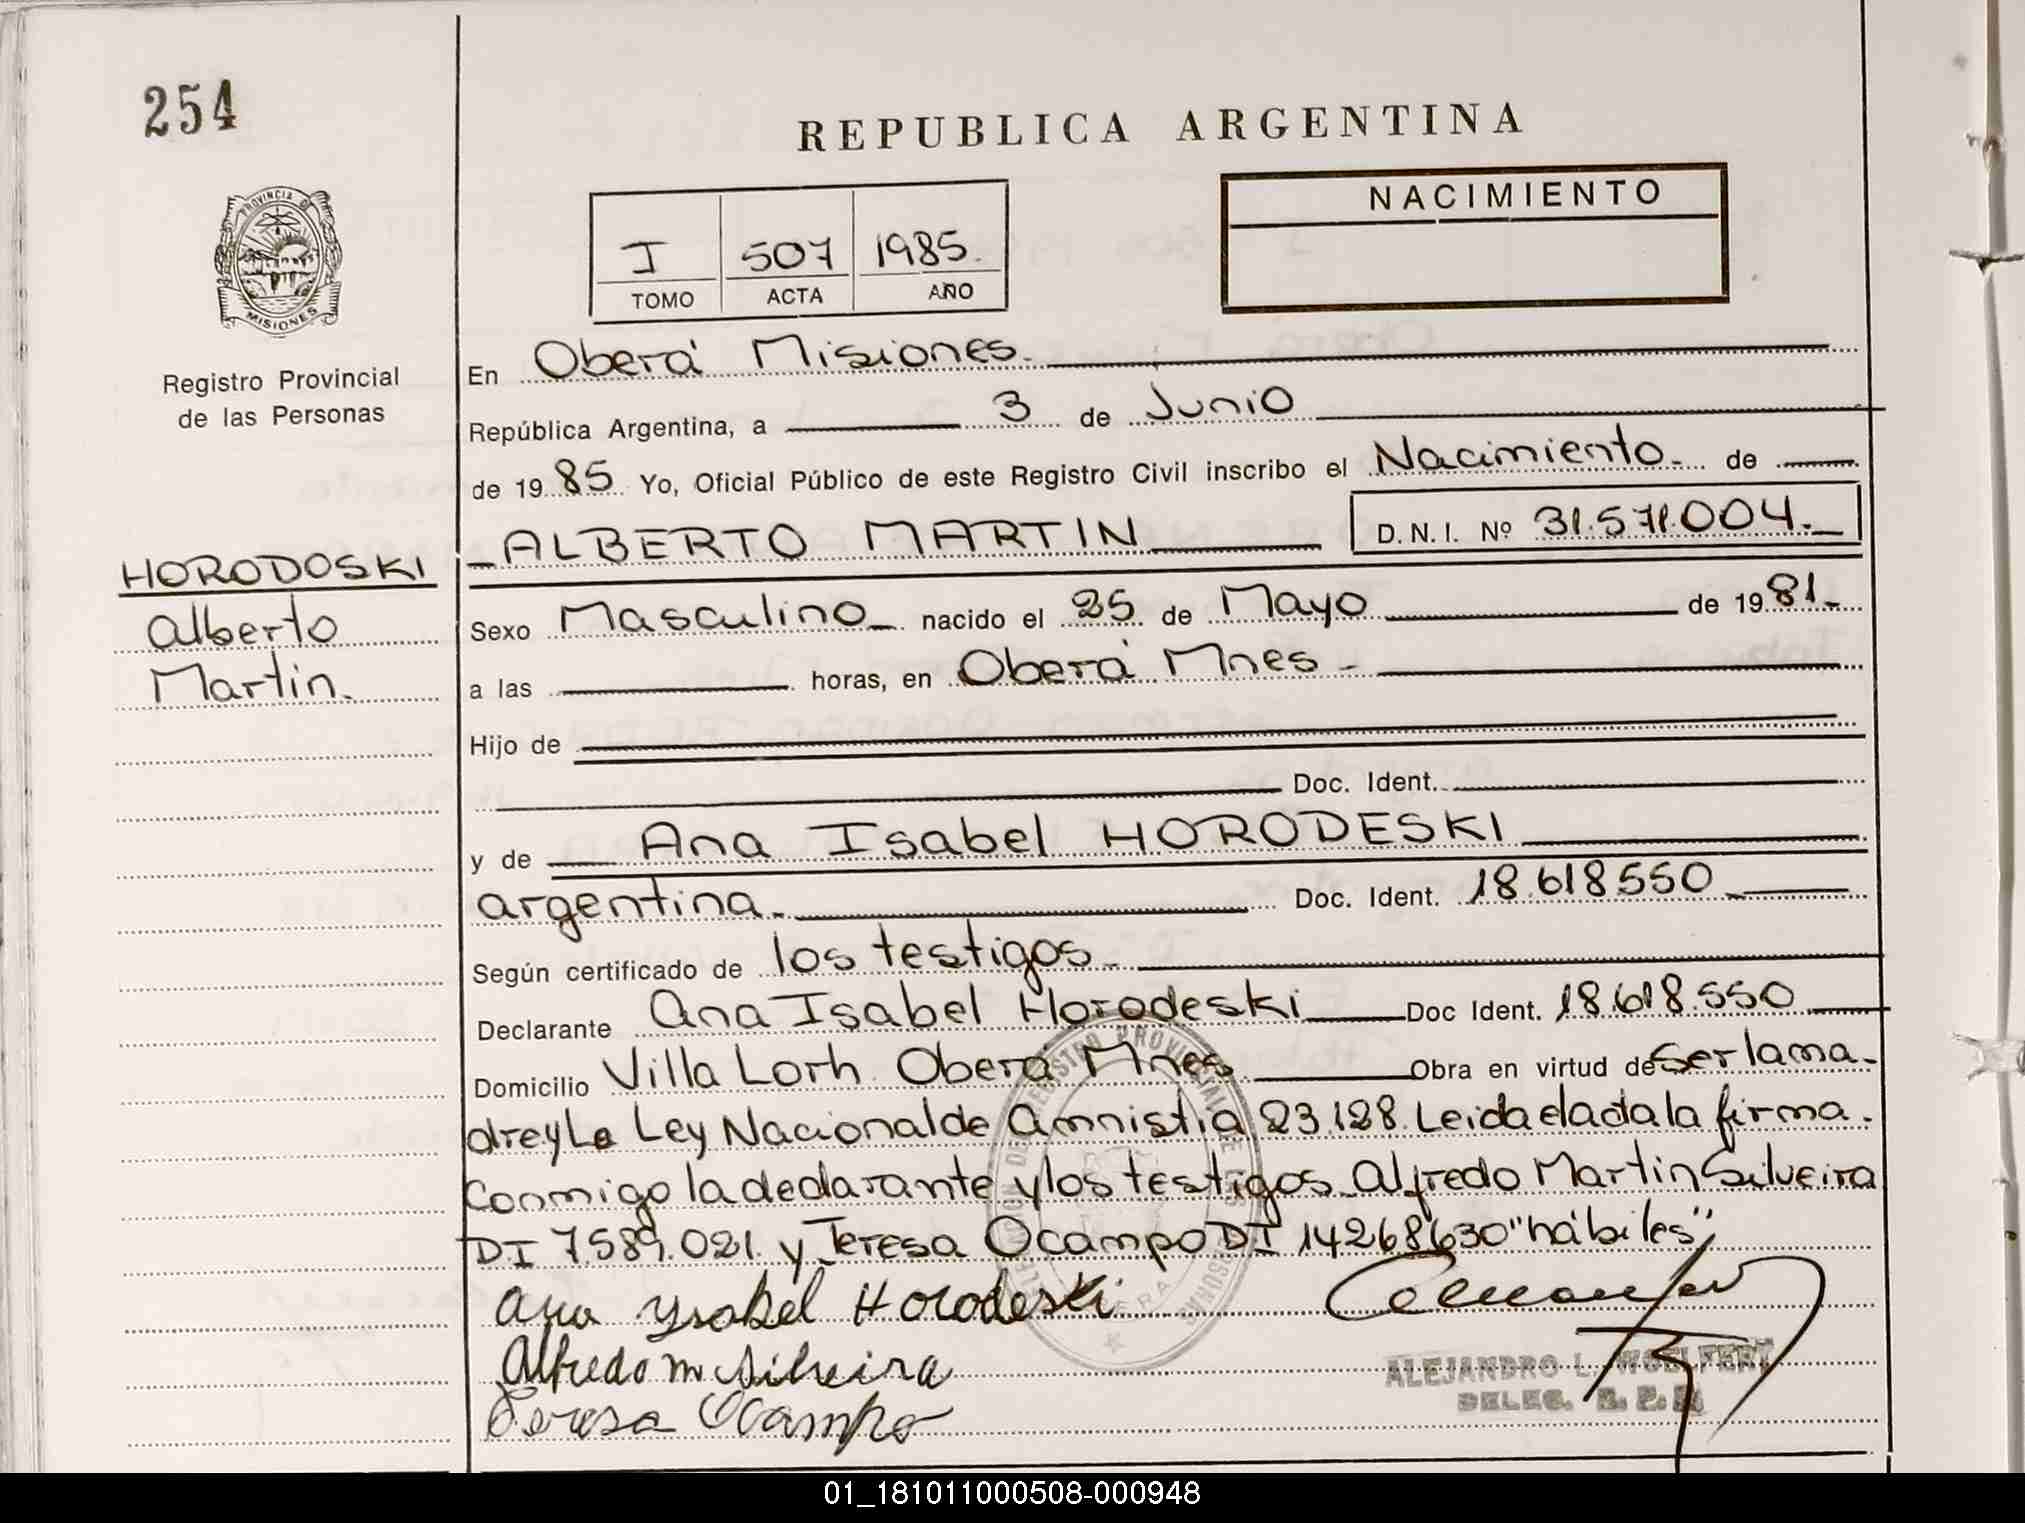 254
REPUBLICA ARGENTINA
NACIMIENTO
I 507 1985.
TOMO ACTA AÑO
PROVINCIA D
MISIONES
Registro Provincial
de las Personas
HORODOSKI
Alberto
Martin.
En Oberá Misiones.
República Argentina, a 3 de Junio
de 1985 Yo, Oficial Público de este Registro Civil inscribo el Nacimiento de
ALBERTO MARTIN D.N.I. Nº 31.571.004.
Sexo Masculino nacido el 25 de Mayo de 1981.
a las horas, en Oberá Mnes.
Hijo de
Doc. Ident.
y de Ana Isabel HORODESKI
argentina. Doc. Ident. 18.618.550
Según certificado de los testigos.
Declarante Ana Isabel Horodeski Doc Ident. 18.618.550
Domicilio Villa Lorh Oberá Mnes Obra en virtud de ser la ma-
dre y La Ley Nacional de Amnistia 23.128. Leida el acta la firma.
Conmigo la declarante y los testigos Alfredo Martin Silveira
DI 7.589.021. y Teresa Ocampo DI 14268630 "hábiles"
Ana Ysabel Horodeski
Alfredo M Silveira
Teresa Ocampo
ALEJANDRO L. WOELFERT
DELEG. R. P. P.
01_181011000508-000948